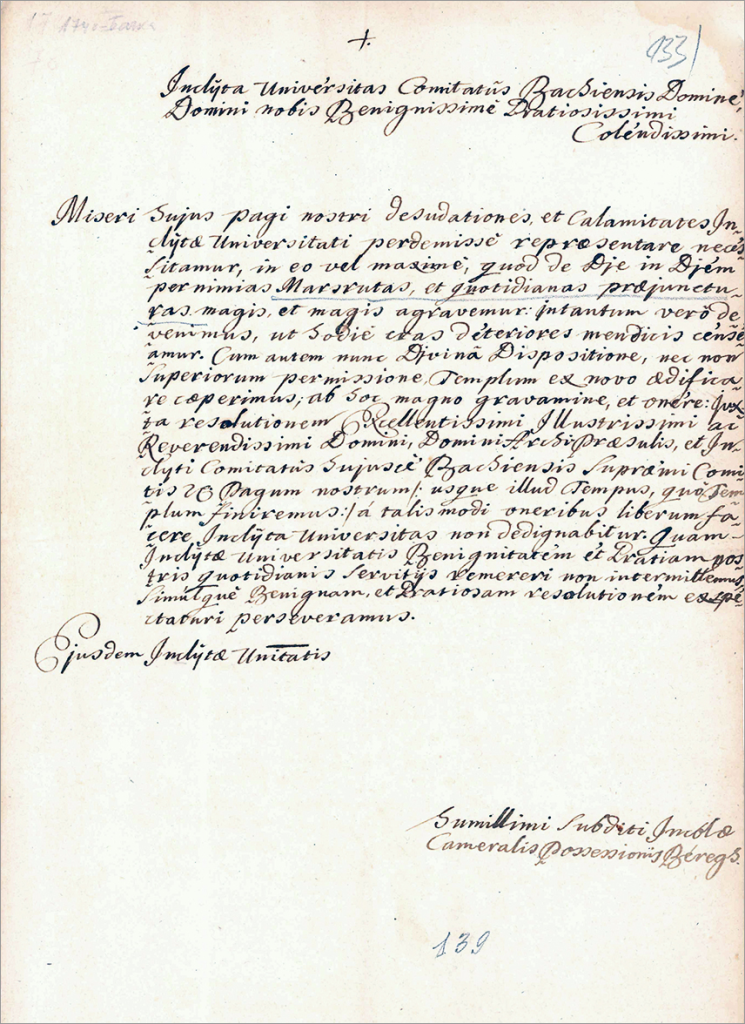 133/
Inclÿta Universitas Comitatûs Bachiensis Domine,
Domini nobis Benignissimè Gratiosissimi
Colendissimi.
Miseri hujus pagi nostri desudationes, et Calamitates In-
clÿtæ Universitati perdemisse repræsentare neces-
sitamur, in eo vel maximè, quod de Die in Diem
per nimias Marsrutas, et quotidianas præjunctu-
ras magis, et magis agravemur: intantum verò de-
venimus, ut hodie cras deteriores mendicis cense-
amur. Cum autem nunc Divinâ Dispositione, nec non
Superiorum permissione, Templum ex novo ædifica-
re cæperimus; ab hoc magno gravamine, et onere: jux-
ta resolutionem Excellentissimi Illustrissimi ac
Reverendissimi Domini, Domini Archi Præsulis, et In-
clÿti Comitatûs hujusce Bachiensis Supræmi Comi-
tis Pagum nostrum /: usque illud Tempus, quô Tem-
plum finiremus:/ á talismodi oneribus liberum fa-
cere Inclÿta Universitas non dedignabitur. Quam
Inclÿtæ Universitatis Benignitatem et Gratiam nos-
tris quotidianis servitÿs remereri non intermittemus,
simulque Benignam, et Gratiosam resolutionem expe-
ctaturi perseveramus.
Ejusdem Inclÿtæ Unitatis
humillimi Subditi Incolæ
Cameralis Possessionis Béregh.
139